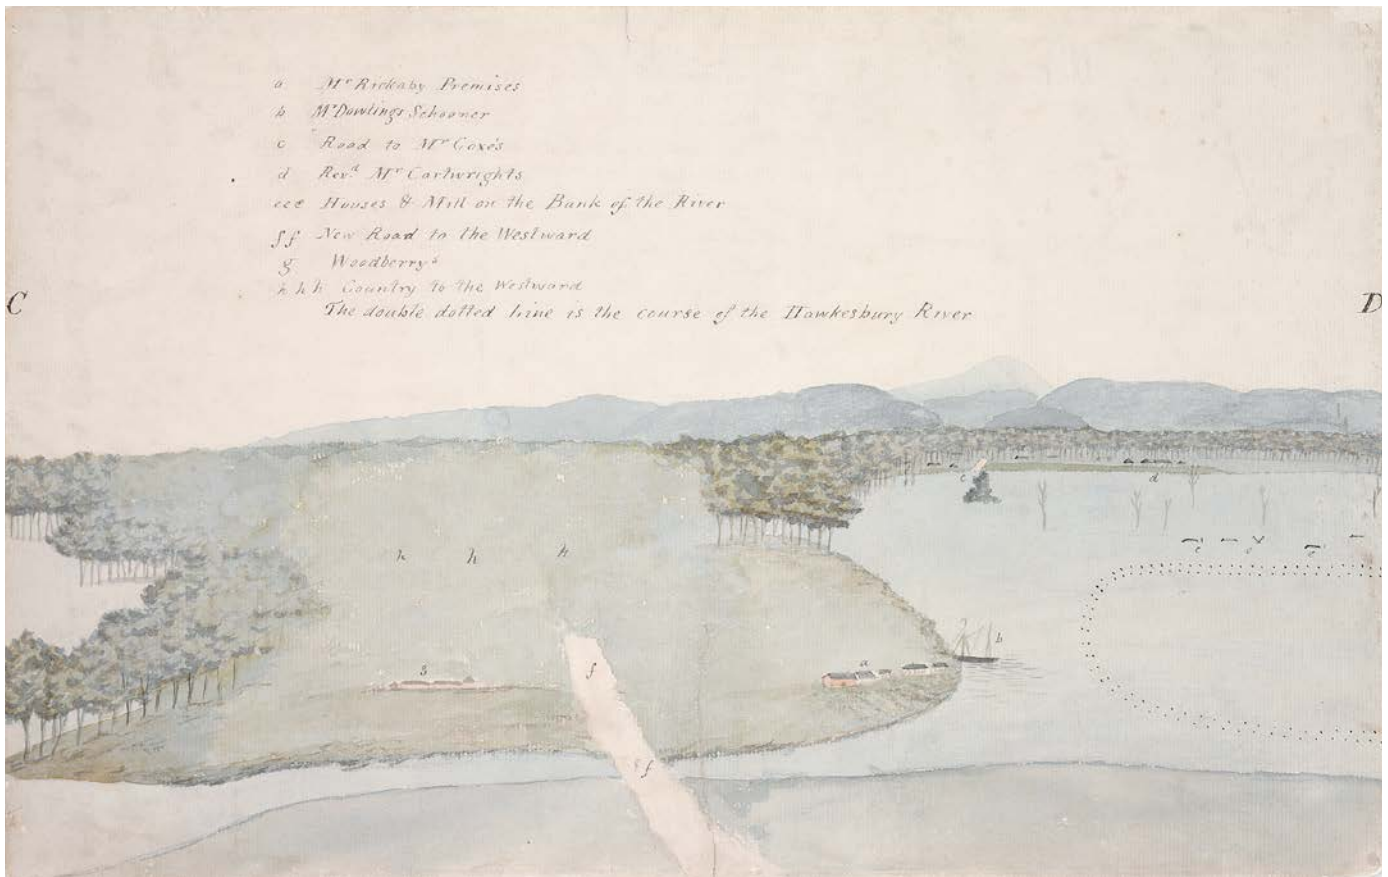 a Mr Rickaby Premises
b Mr Dowlings Schooner
c Road to Mr Coxes
d Revd. Mr Cartwrights
eee Houses & Mill on the Bank of the River
ff New Road to the Westward
g Woodberrys
hhh Country to the Westward
The double dotted Line is the course of the Hawkesbury River
C
D
c
d
e
e
e
h h h
b
a
g
f
f